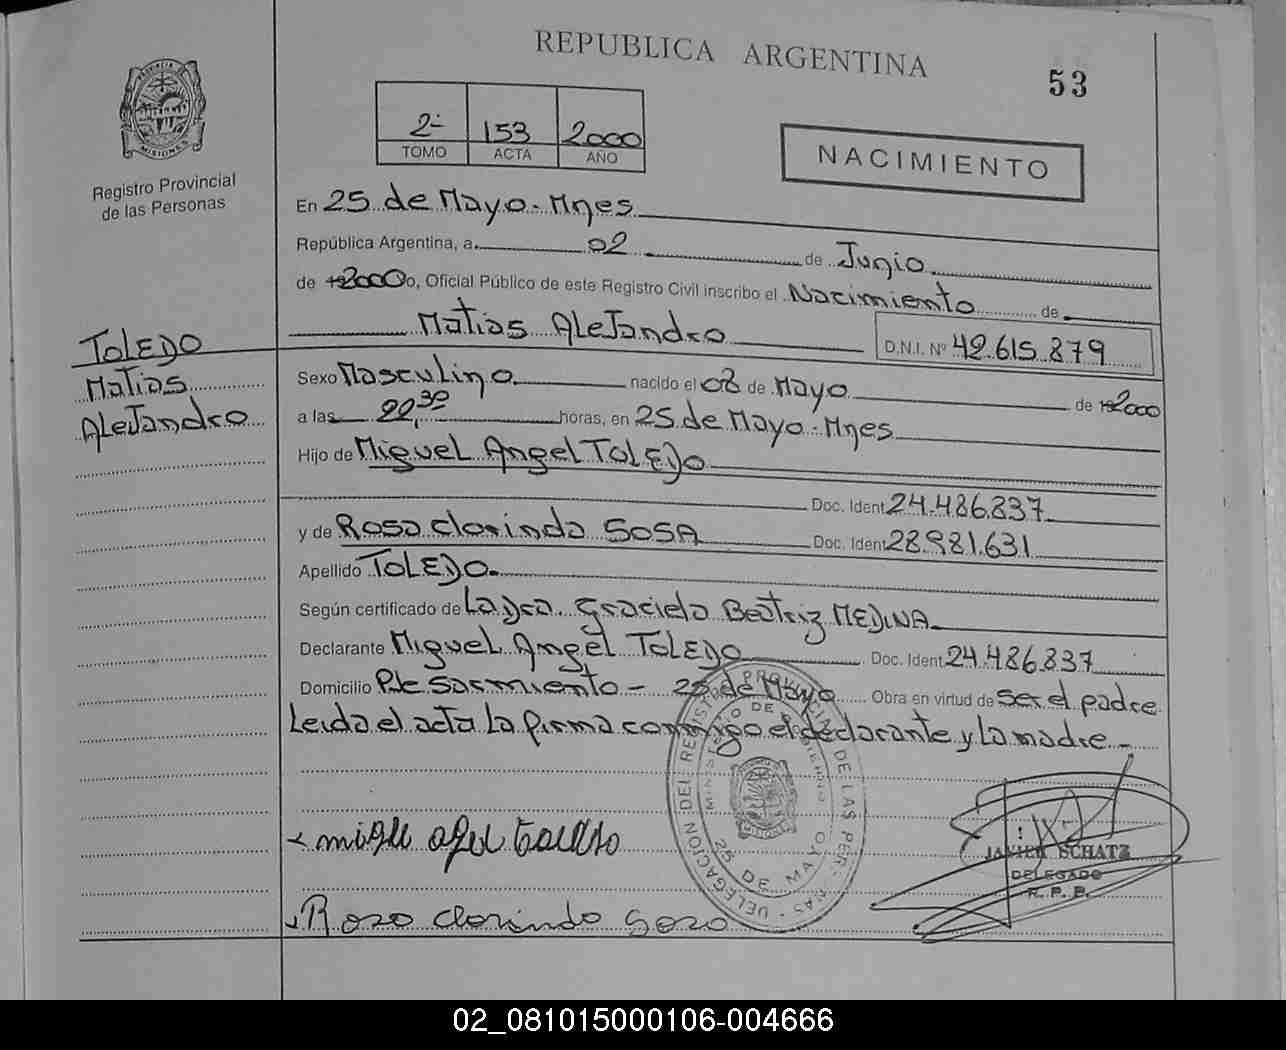 REPUBLICA ARGENTINA
53
PROVINCIA DE
MISIONES
Registro Provincial
de las Personas
2º 153 2000
TOMO ACTA AÑO
NACIMIENTO
En 25 de Mayo - Mnes
República Argentina, a 02 de Junio
de 2000 o, Oficial Público de este Registro Civil inscribo el Nacimiento de
Matias Alejandro
D.N.I. Nº 42.615.879
TOLEDO
Matias
Alejandro
Sexo Masculino nacido el 08 de Mayo de 2000
a las 22,30 horas, en 25 de Mayo - Mnes
Hijo de Miguel Angel TOLEDO
Doc. Ident 24.486.837
y de Rosa Clorinda SOSA Doc. Ident 28.981.631
Apellido TOLEDO.
Según certificado de La Dra. Graciela Beatriz MEDINA
Declarante Miguel Angel TOLEDO Doc. Ident 24.486.837
Domicilio Pje Sarmiento - 25 de Mayo Obra en virtud de ser el padre
Leida el acta La firma conmigo el declarante y La madre -
DELEGACION DEL REGISTRO PROVINCIAL DE LAS PER
25 DE MAYO
MISIONES
JAVIER SCHATZ
DELEGADO
R. P. P.
Roza clorindo Soza
02_081015000106-004666